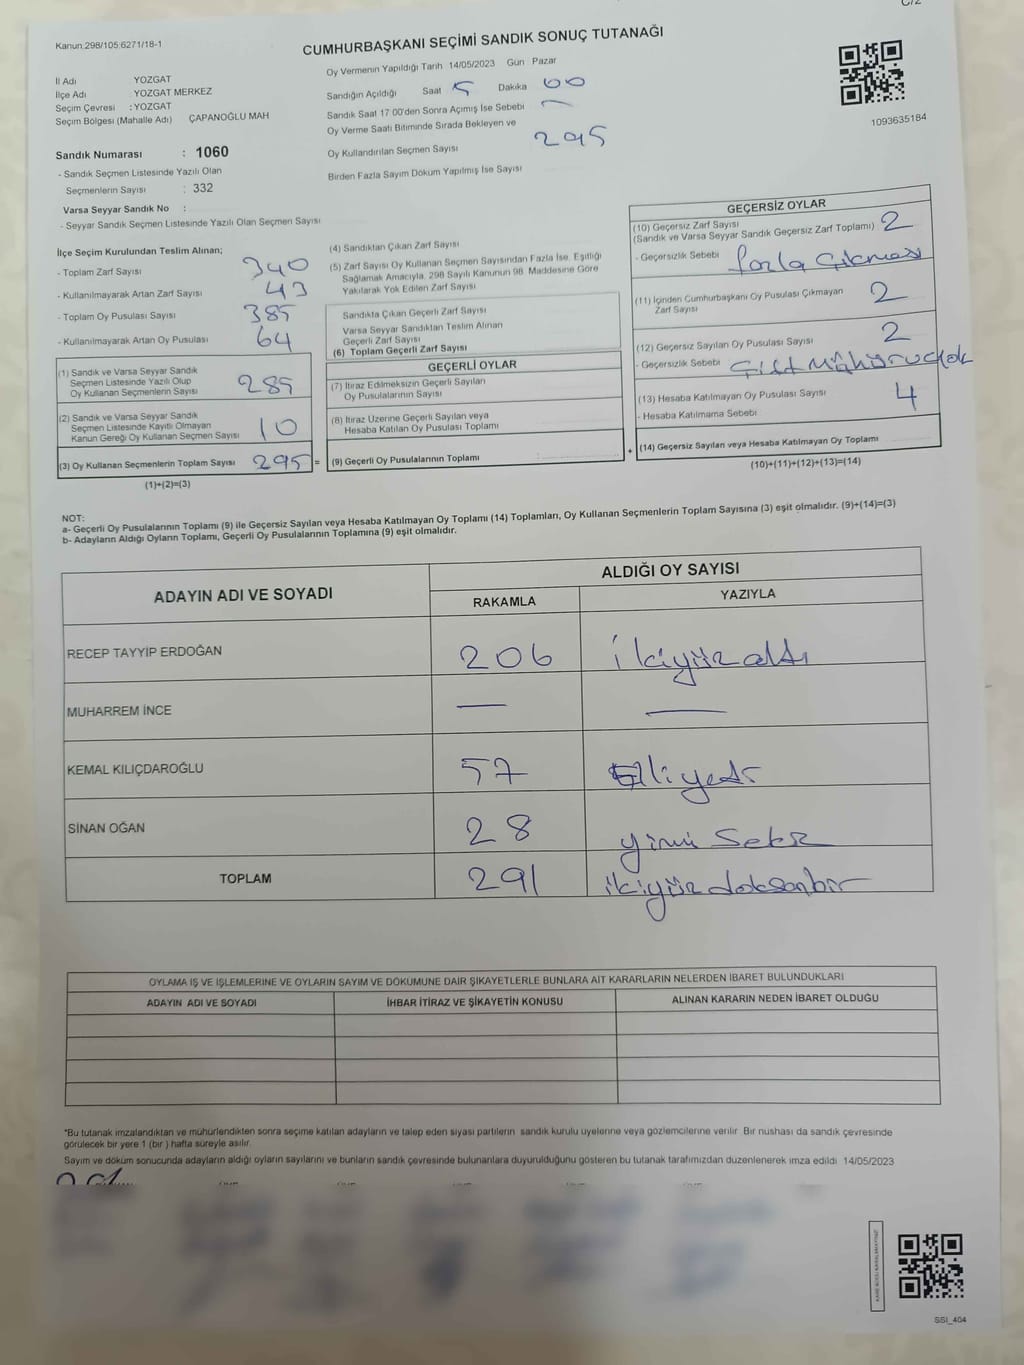 C/2
Kanun:298/105:6271/18-1
CUMHURBAŞKANI SEÇİMİ SANDIK SONUÇ TUTANAĞI
İl Adı YOZGAT
İlçe Adı YOZGAT MERKEZ
Seçim Çevresi : YOZGAT
Seçim Bölgesi (Mahalle Adı) ÇAPANOĞLU MAH
Sandık Numarası : 1060
- Sandık Seçmen Listesinde Yazılı Olan
Seçmenlerin Sayısı : 332
Varsa Seyyar Sandık No :
- Seyyar Sandık Seçmen Listesinde Yazılı Olan Seçmen Sayısı
Oy Vermenin Yapıldığı Tarih 14/05/2023 Gün Pazar
Sandığın Açıldığı Saat 5 Dakika 00
Sandık Saat 17 00'den Sonra Açımış İse Sebebi —
Oy Verme Saati Bitiminde Sırada Bekleyen ve
Oy Kullandırılan Seçmen Sayısı 295
Birden Fazla Sayım Döküm Yapılmış İse Sayısı
1093635184
İlçe Seçim Kurulundan Teslim Alınan;
- Toplam Zarf Sayısı 340
- Kullanılmayarak Artan Zarf Sayısı 43
- Toplam Oy Pusulası Sayısı 385
- Kullanılmayarak Artan Oy Pusulası 64
(1) Sandık ve Varsa Seyyar Sandık
Seçmen Listesinde Yazılı Olup
Oy Kullanan Seçmenlerin Sayısı 285
(2) Sandık ve Varsa Seyyar Sandık
Seçmen Listesinde Kayıtlı Olmayan
Kanun Gereği Oy Kullanan Seçmen Sayısı 10
(3) Oy Kullanan Seçmenlerin Toplam Sayısı 295 =
(1)+(2)=(3)
(4) Sandıktan Çıkan Zarf Sayısı
(5) Zarf Sayısı Oy Kullanan Seçmen Sayısından Fazla İse, Eşitliği
Sağlamak Amacıyla, 298 Sayılı Kanunun 98. Maddesine Göre
Yakılarak Yok Edilen Zarf Sayısı
Sandıkta Çıkan Geçerli Zarf Sayısı
Varsa Seyyar Sandıktan Teslim Alınan
Geçerli Zarf Sayısı
(6) Toplam Geçerli Zarf Sayısı
GEÇERLİ OYLAR
(7) İtiraz Edilmeksizin Geçerli Sayılan
Oy Pusulalarının Sayısı
(8) İtiraz Üzerine Geçerli Sayılan veya
Hesaba Katılan Oy Pusulası Toplamı
(9) Geçerli Oy Pusulalarının Toplamı : +
GEÇERSİZ OYLAR
(10) Geçersiz Zarf Sayısı
(Sandık ve Varsa Seyyar Sandık Geçersiz Zarf Toplamı) 2
- Geçersizlik Sebebi fazla Çıkması
(11) İçinden Cumhurbaşkanı Oy Pusulası Çıkmayan
Zarf Sayısı 2
(12) Geçersiz Sayılan Oy Pusulası Sayısı 2
- Geçersizlik Sebebi
(13) Hesaba Katılmayan Oy Pusulası Sayısı 4
- Hesaba Katılmama Sebebi
(14) Geçersiz Sayılan veya Hesaba Katılmayan Oy Toplamı
(10)+(11)+(12)+(13)=(14)
NOT:
a- Geçerli Oy Pusulalarının Toplamı (9) ile Geçersiz Sayılan veya Hesaba Katılmayan Oy Toplamı (14) Toplamları, Oy Kullanan Seçmenlerin Toplam Sayısına (3) eşit olmalıdır. (9)+(14)=(3)
b- Adayların Aldığı Oyların Toplamı, Geçerli Oy Pusulalarının Toplamına (9) eşit olmalıdır.
ADAYIN ADI VE SOYADI ALDIĞI OY SAYISI
RAKAMLA YAZIYLA
RECEP TAYYİP ERDOĞAN 206 ikiyüzaltı
MUHARREM İNCE — —
KEMAL KILIÇDAROĞLU 57 Elliyedi
SİNAN OĞAN 28 yirmi Sekiz
TOPLAM 291 ikiyüzdoksanbir
OYLAMA İŞ VE İŞLEMLERİNE VE OYLARIN SAYIM VE DÖKÜMÜNE DAİR ŞİKAYETLERLE BUNLARA AİT KARARLARIN NELERDEN İBARET BULUNDUKLARI
ADAYIN ADI VE SOYADI İHBAR İTİRAZ VE ŞİKAYETİN KONUSU ALINAN KARARIN NEDEN İBARET OLDUĞU
*Bu tutanak imzalandıktan ve mühürlendikten sonra seçime katılan adayların ve talep eden siyasi partilerin sandık kurulu üyelerine veya gözlemcilerine verilir Bir nushası da sandık çevresinde
görülecek bir yere 1 (bir ) hafta süreyle asılır.
Sayım ve döküm sonucunda adayların aldığı oyların sayılarını ve bunların sandık çevresinde bulunanlara duyurulduğunu gösteren bu tutanak tarafımızdan düzenlenerek imza edildi 14/05/2023
SSI_404